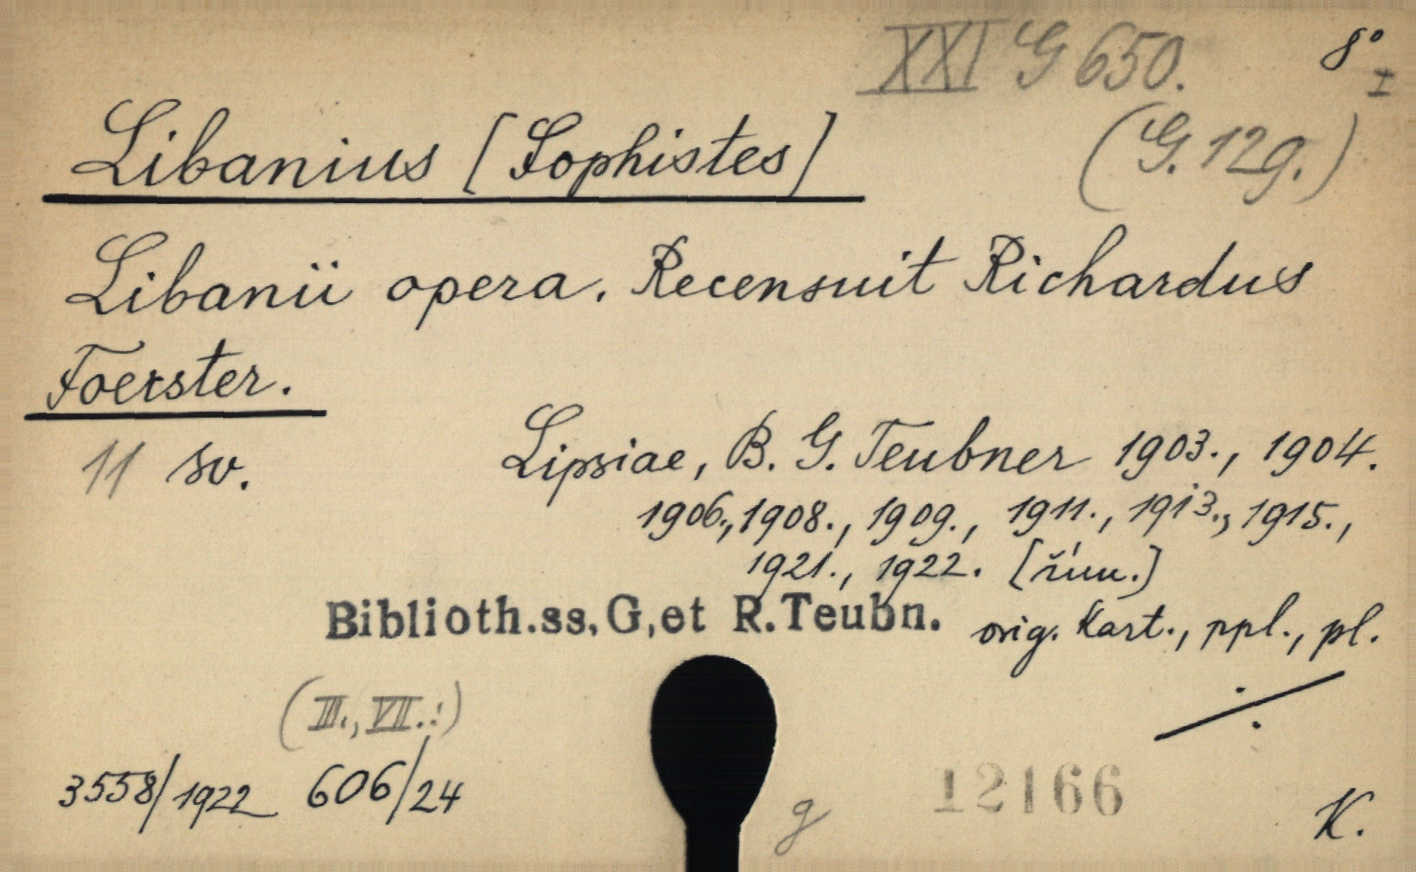 XXI G 650. 8° I
Libanius [Sophistes] (G. 12g.)
Libanii opera. Recensuit Richardus
Foerster.
11 sv. Lipsiae, B. G. Teubner 1903., 1904.
1906., 1908., 1909., 1911., 1913., 1915.,
1921., 1922. [řím.]
Biblioth.ss.G.et R.Teubn. orig. kart., ppl., pl.
(III., VII.:)
3558/1922 606/24
g 12166 K.